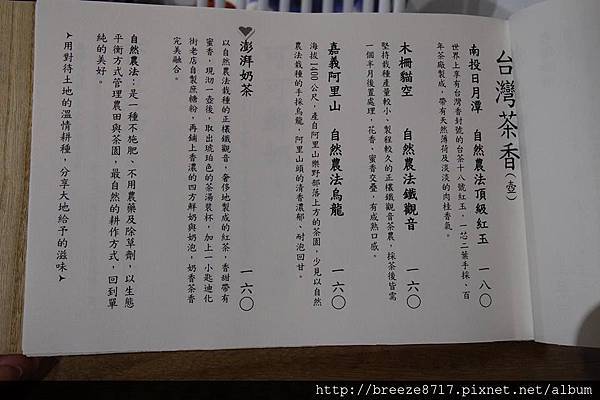 台灣茶香(壺)
南投日月潭 自然農法頂級紅玉 一八〇
世界上享有台灣香封號的台茶十八號紅玉，一芯二葉手採、百
年茶廠製成，帶有天然薄荷及淡淡的肉桂香氣。
木柵貓空 自然農法鐵觀音 一六〇
堅持栽種產量較小、製程較久的正欉鐵觀音茶農，採茶後皆需
一個半月後置處理，花香、蜜香交疊，有成熟口感。
嘉義阿里山 自然農法烏龍 一六〇
海拔一二〇〇公尺，產自阿里山樂野部落上方的茶園，少見以自然
農法栽種的手採烏龍，阿里山頭的清香濃郁、耐泡回甘。
澎湃奶茶 一六〇
以自然農法栽種的正欉鐵觀音，奢侈地製成的紅茶，香甜帶有
蜜香，現沏一壺後，取出琥珀色的茶湯裝杯，加上一小匙迪化
街老店自製蔗糖粉，再鋪上香濃的四方鮮奶與奶泡，奶香茶香
完美融合。
自然農法：是一種不施肥、不用農藥及除草劑，以生態
平衡方式管理農田與茶園，最自然的耕作方式，回到單
純的美好。
用對待土地的溫情耕種，分享大地給予的滋味
http://breeze8717.pixnet.net/album